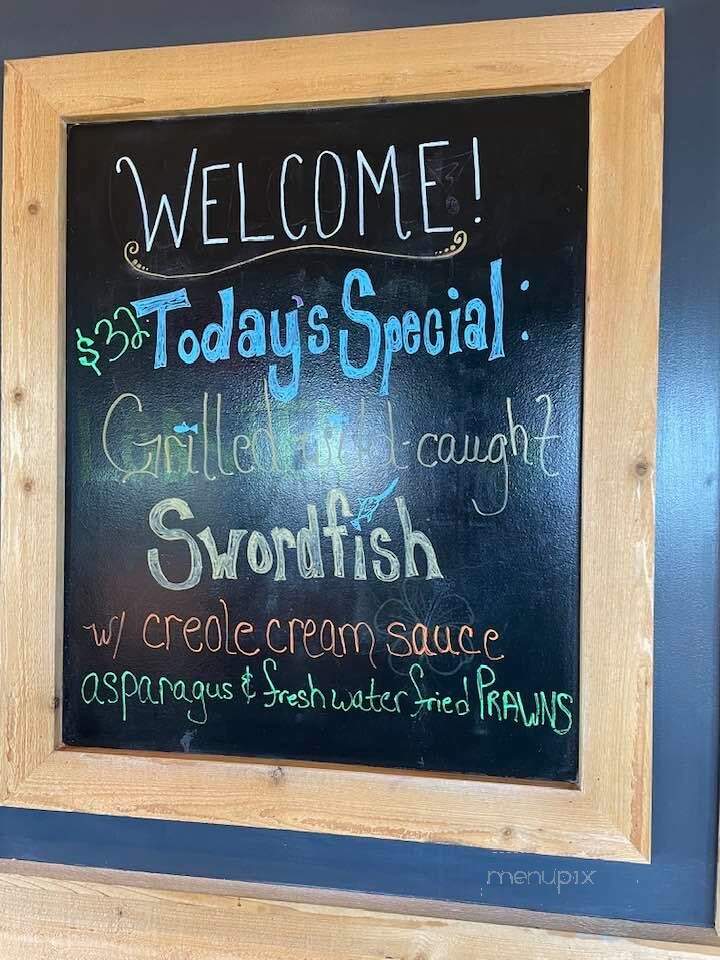 WELCOME!
$32 Today's Special:
Grilled wild-caught
Swordfish
w/ creole cream sauce
asparagus & fresh water fried PRAWNS
menupix